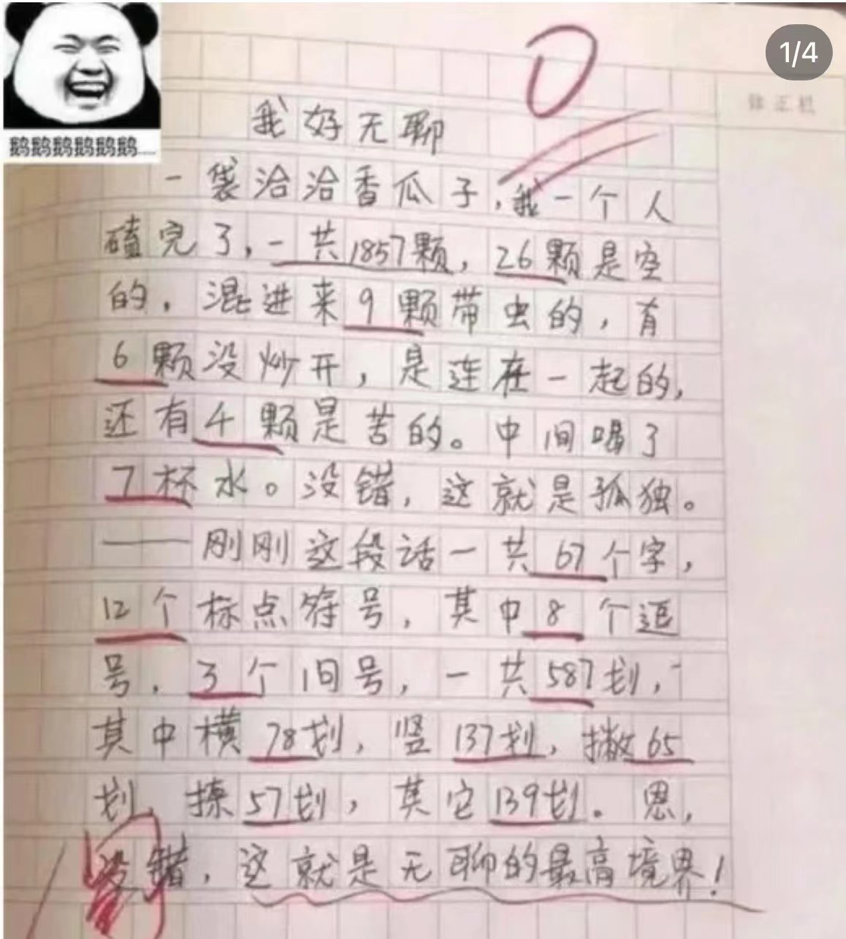 1/4
鹅鹅鹅鹅鹅鹅......
我好无聊
一袋洽洽香瓜子,我一个人
磕完了,一共1857颗,26颗是空
的,混进来9颗带虫的,有
6颗没炒开,是连在一起的,
还有4颗是苦的。中间喝了
7杯水。没错,这就是孤独。
——刚刚这段话一共67个字,
12个标点符号,其中8个逗
号,3个旧号,一共587划,
其中横78划,竖137划,撇65
划,捺57划,其它139划。恩,
没错,这就是无聊的最高境界!
0